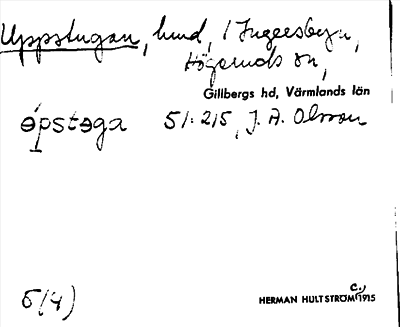 Uppstugan, lund, i Ingersbyn,
Högeruds sn,
Gillbergs hd, Värmlands län
ɵ́pstɵga 51:215, J. A. Olsson
5(4)
HERMAN HULTSTRÖM c. 1915